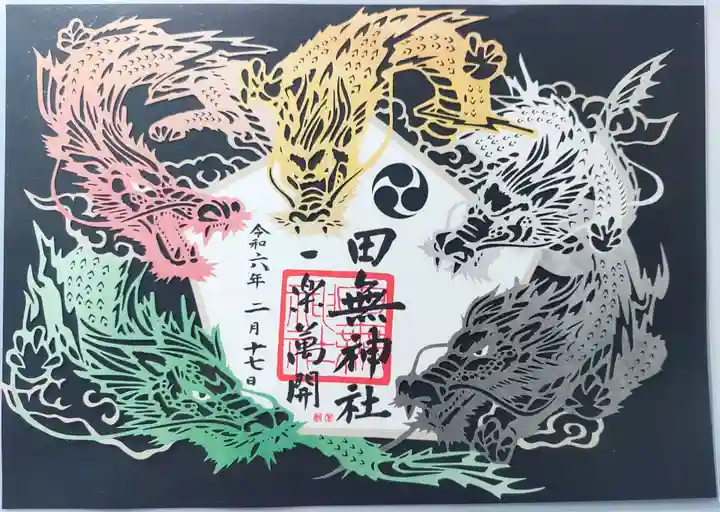 田無神社
一楽萬開
令和六年 二月十七日